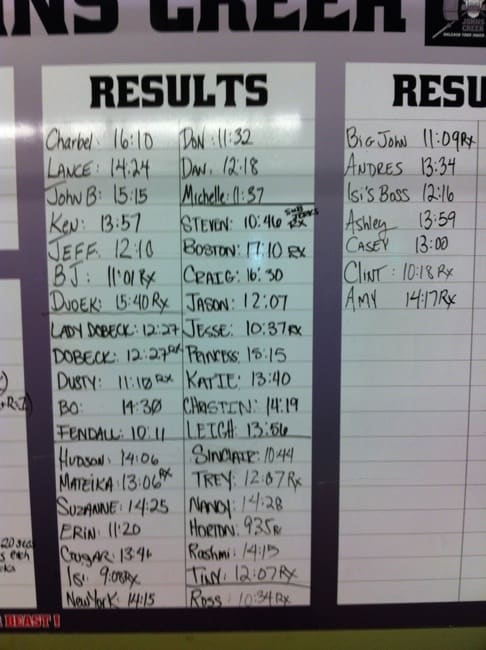 NS CREEK
JOHNS CREEK
RESULTS
Charbel: 16:10
LANCE: 14:24
John B: 15:15
Ken: 13:57
JEFF: 12:10
BJ: 11:01 Rx
DUOEK: 15:40 Rx
LADY DOBECK: 12:27
DOBECK: 12:27 RX
DUSTY: 11:18 RX
BO: 14:30
FENDALL: 10:11
HUDSON: 14:06
MATEIKA: 13:06 RX
SUZANNE: 14:25
ERIN: 11:20
Cougar: 13:41
Isi: 9:08 RX
New York: 14:15
DON: 11:32
Dan: 12:18
Michelle: 11:37
STEVEN: 10:46 RX
BOSTON: 17:10 RX
CRAIG: 16:30
JASON: 12:07
JESSE: 10:37 RX
PRINCESS: 15:15
KATIE: 13:40
CHRISTIN: 14:19
LEIGH: 13:56
SINCLAIR: 10:44
TREY: 12:07 Rx
NANCY: 14:28
HORTON: 935 Rx
Rashmi: 14:15
TINY: 12:07 Rx
Ross: 10:34 Rx
RESU
BIG JOHN 11:09 Rx
ANDRES 13:34
Isi's Boss 12:16
Ashley 13:59
CASEY 13:00
CLINT: 10:18 Rx
AMY 14:17 Rx
20 sec
BEAST!